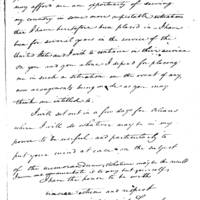 may afford me an opportunity of serving
my country in some more respectable situation
than I have heretofore been placed in. I have
been for several years in the service of the
United States and I wish to continue in that service
on you and you alone I depend for placing
me in such a situation on the event of any
new arrangements being made as you may
think me entitled to.
I will set out in a few days for Orleans
where I will do whatever may be in my
power to be useful and particularly to
put your mind at ease on the subject
of the
communicate it to any but yourself
I have the honor to be with
esteem and respect